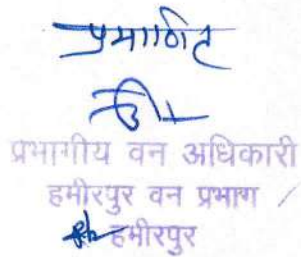 प्रमाणित
प्रभागीय वन अधिकारी
हमीरपुर वन प्रभाग
हमीरपुर